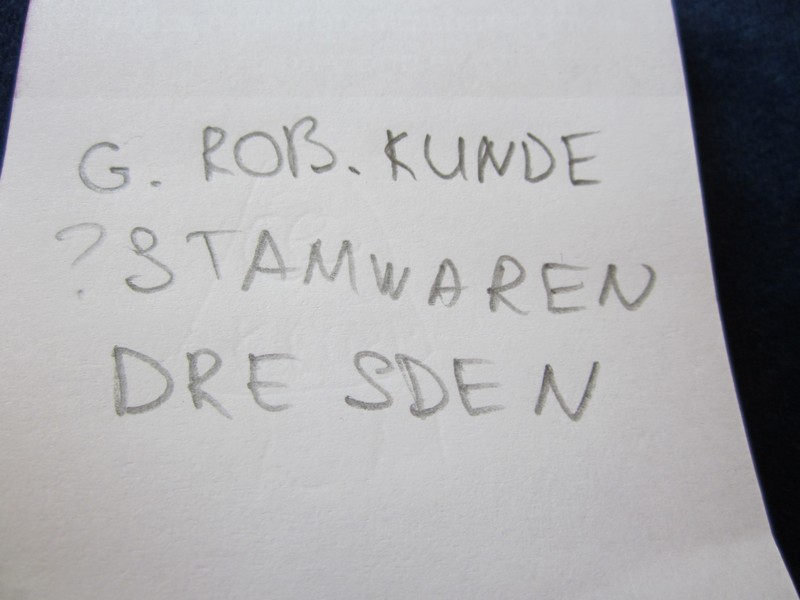 G. ROß. KUNDE
? STAMWAREN
DRESDEN